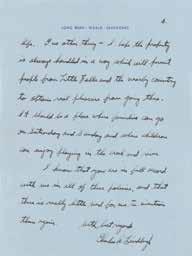 4.
LONG BARN • WEALD • SEVENOAKS
life. One other thing — I hope the property
is always handled in a way which will permit
people from Little Falls and the nearby country
to obtain real pleasure from going there.
It should be a place where families can go
on Saturday and Sunday and where children
can enjoy playing in the creek and river.
I know that you are in full accord
with me in all of these policies, and that
there is really little need for me to mention
them again.
With best regards
Charles A. Lindbergh